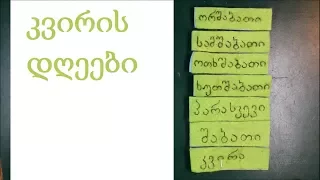 კვირის
დღეები
ორშაბათი
სამშაბათი
ოთხშაბათი
ხუთშაბათი
პარასკევი
შაბათი
კვირა